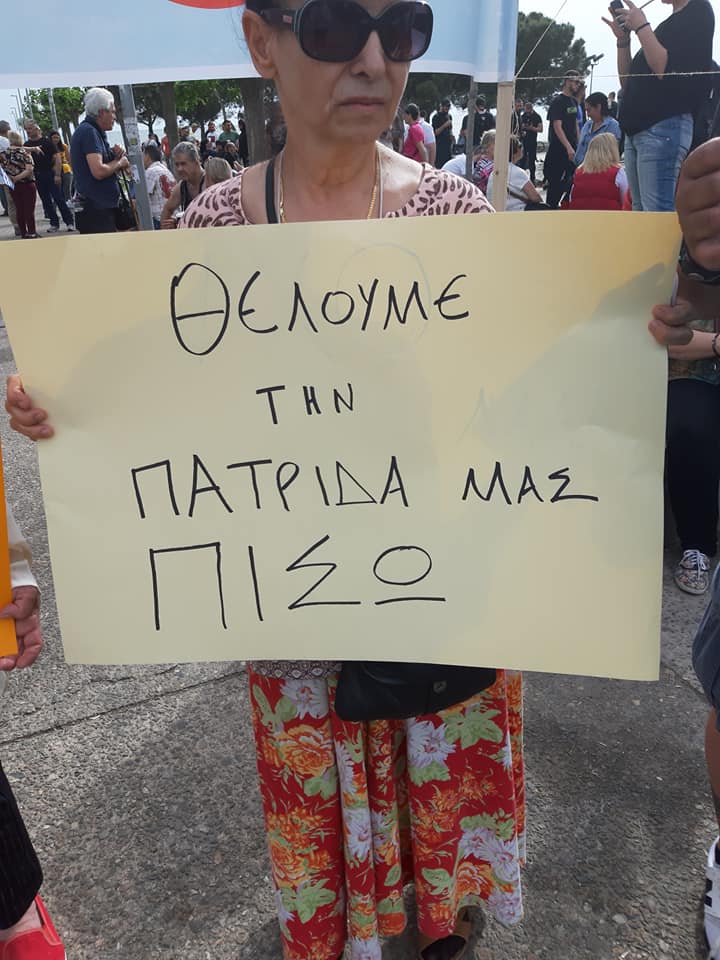 ΘΕΛΟΥΜΕ
ΤΗΝ
ΠΑΤΡΙΔΑ ΜΑΣ
ΠΙΣΩ